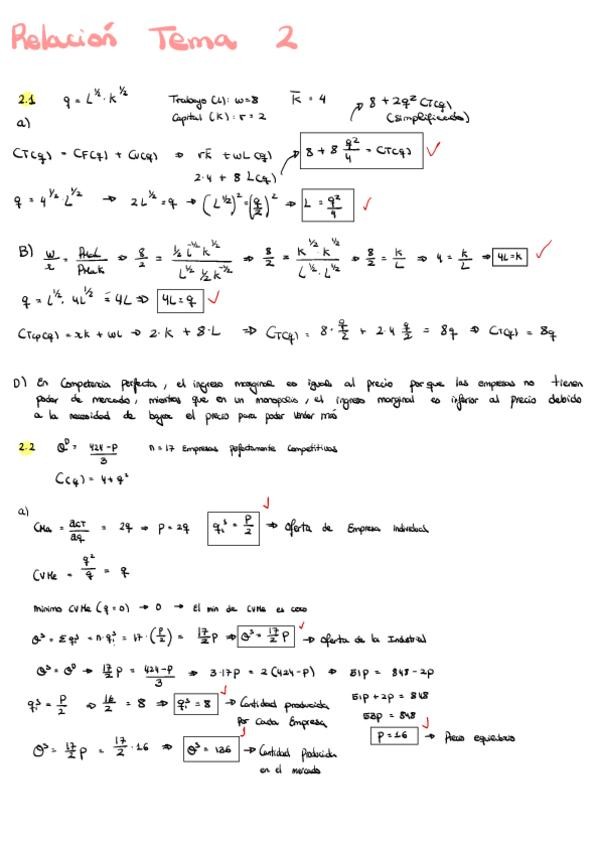 Relación Tema 2
2.1 q = L^½ · K^½ Trabajo (L): w=8 K̄ = 4 8 + 2q² CT(q)
a) Capital (K): r = 2 (simplificado)
CT(q) = CF(q) + CV(q) ⇒ rK̄ + wL(q) 8 + 8 q²/4 = CT(q) ✓
2·4 + 8 L(q)
q = 4^½ · L^½ ⇒ 2L^½ = q → (L^½)² = (q/2)² ⇒ L = q²/4 ✓
B) w/r = PMaL/PMaK ⇒ 8/2 = ½ L^-½ K^½ / L^½ ½ K^-½ ⇒ 8/2 = K^½ K^½ / L^½ · L^½ ⇒ 8/2 = K/L ⇒ 4 = K/L ⇒ 4L = K ✓
q = L^½ · 4L^½ = 4L ⇒ 4L = q ✓
CTLP(q) = rK + wL → 2·K + 8·L ⇒ CT(q) = 8 · q/2 + 2·4 q/2 = 8q ⇒ CT(q) = 8q
D) En Competencia Perfecta, el ingreso marginal es igual al precio porque las empresas no tienen
poder de mercado, mientras que en un monopolio, el ingreso marginal es inferior al precio debido
a la necesidad de bajar el precio para poder vender más
2.2 Q^D = 424-P/3 n = 17 Empresas perfectamente Competitivas
C(q) = 4 + q²
a)
CMa = ∂CT/∂q = 2q ⇒ P = 2q q_i^s = P/2 ✓ → Oferta de Empresa Individual
CVMe = q²/q = q
mínimo CVMe (q=0) → 0 → El min de CVMe es cero
Q^s = Σq_i^s = n·q_i^s = 17·(P/2) = 17/2 P ⇒ Q^s = 17/2 P ✓ → Oferta de la Industria
Q^s = Q^D → 17/2 P = 424-P/3 → 3·17P = 2(424-P) → 51P = 848-2P
q_i^s = P/2 ⇒ 16/2 = 8 ⇒ q_i^s = 8 ✓ → Cantidad producida 51P + 2P = 848
Por cada Empresa 53P = 848
Q^s = 17/2 P = 17/2 · 16 ⇒ Q^s = 136 ✓ → Cantidad Producida P = 16 ✓ → Precio equilibrio
en el mercado